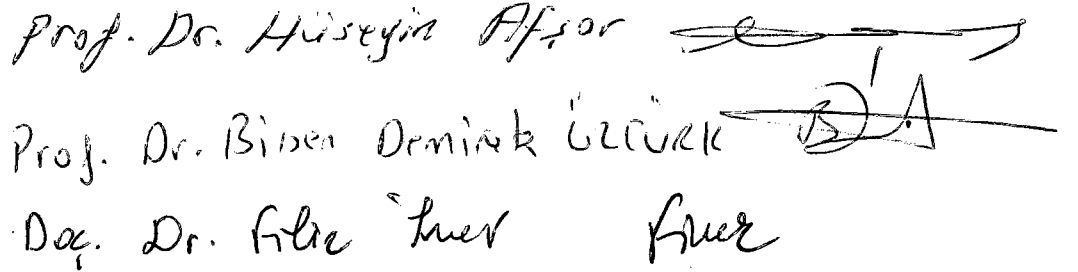 Prof. Dr. Hüseyin Afşar
Prof. Dr. Birsen Demirek ÖZTÜRK
Doç. Dr. Filiz